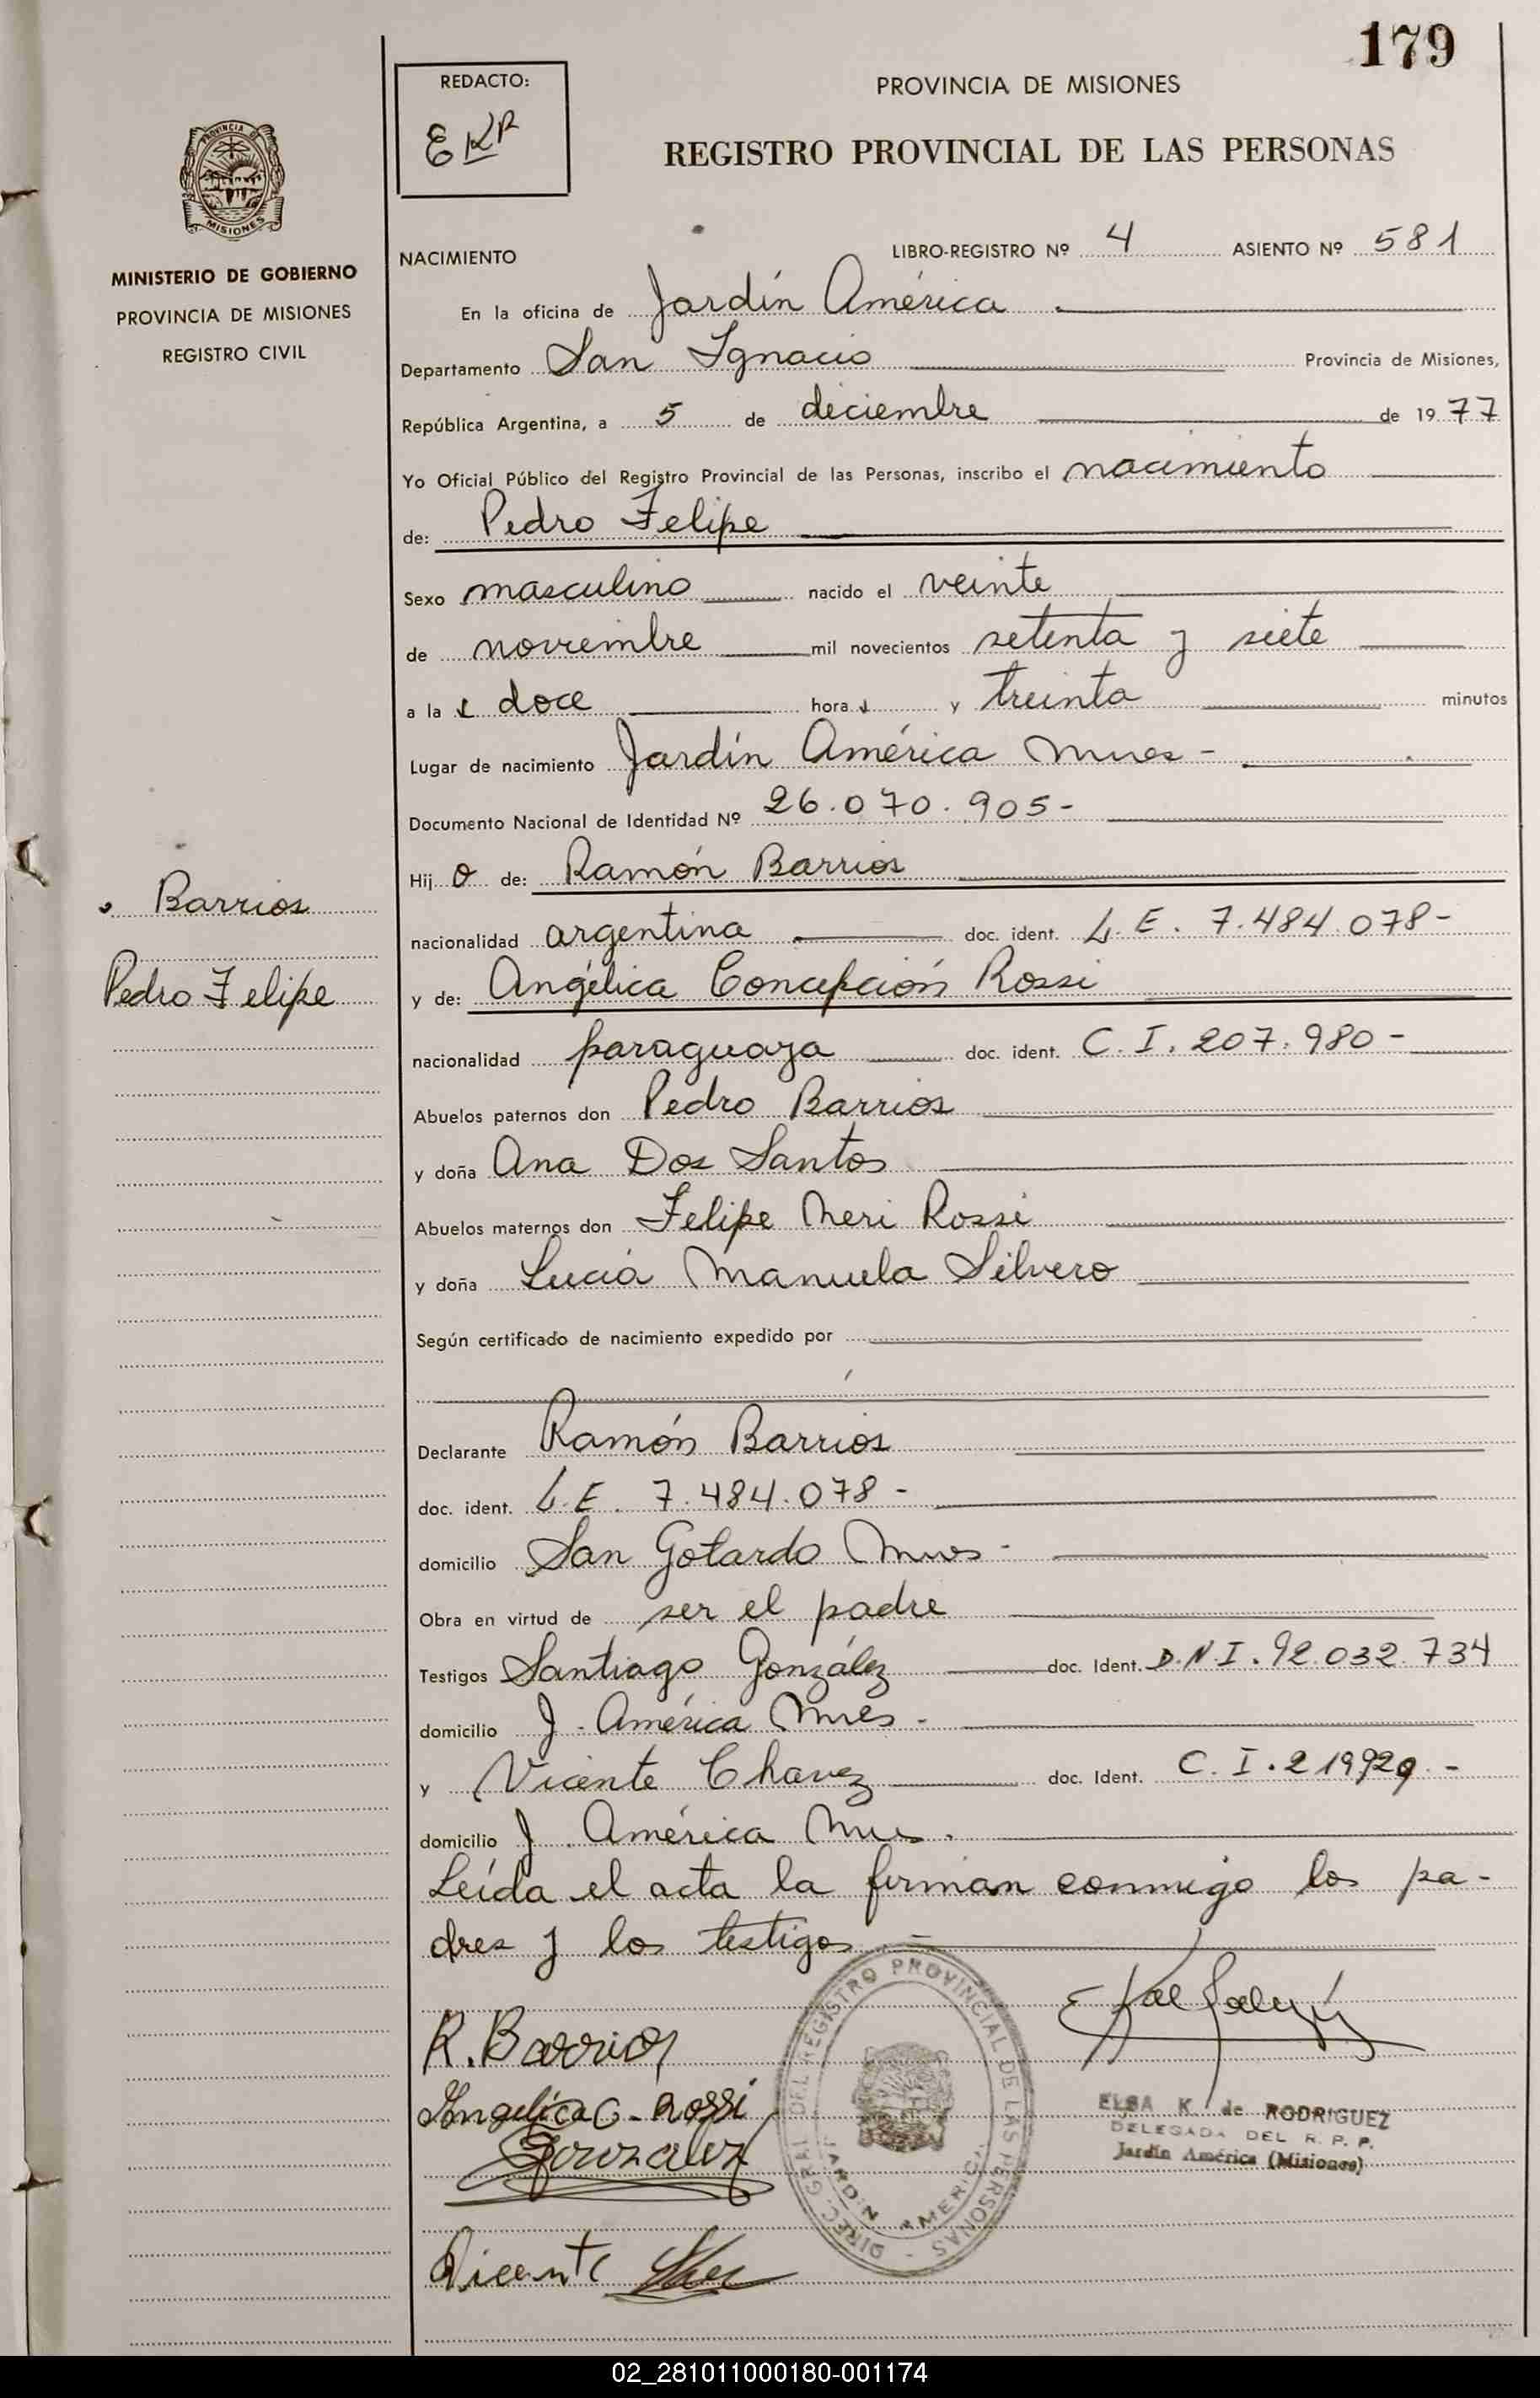 179
REDACTO:
EKR
PROVINCIA DE MISIONES
REGISTRO PROVINCIAL DE LAS PERSONAS
PROVINCIA DE
MISIONES
MINISTERIO DE GOBIERNO
PROVINCIA DE MISIONES
REGISTRO CIVIL
NACIMIENTO LIBRO-REGISTRO Nº 4 ASIENTO Nº 581
En la oficina de Jardín América
Departamento San Ignacio Provincia de Misiones,
República Argentina, a 5 de diciembre de 1977
Yo Oficial Público del Registro Provincial de las Personas, inscribo el nacimiento
de: Pedro Felipe
Sexo masculino nacido el veinte
de noviembre mil novecientos setenta y siete
a la s doce hora s y treinta minutos
Lugar de nacimiento Jardín América Mnes -
Documento Nacional de Identidad Nº 26.070.905-
Hij o de: Ramón Barrios
Barrios
nacionalidad argentina doc. ident. L.E. 7.484.078-
Pedro Felipe
y de: Angélica Concepción Rossi
nacionalidad paraguaya doc. ident. C.I. 207.980-
Abuelos paternos don Pedro Barrios
y doña Ana Dos Santos
Abuelos maternos don Felipe Neri Rossi
y doña Lucía Manuela Silvero
Según certificado de nacimiento expedido por
Declarante Ramón Barrios
doc. ident. L.E. 7.484.078-
domicilio San Gotardo Mnes-
Obra en virtud de ser el padre
Testigos Santiago González doc. Ident. D.N.I. 92.032.734
domicilio J. América Mnes-
y Vicente Chavez doc. Ident. C.I. 219929-
domicilio J. América Mnes.
Leída el acta la firman conmigo los pa-
dres y los testigos. -
R. Barrios
Angelica C. Rossi
Gonzalez
Vicente
DIREC. GRAL. DEL REGISTRO PROVINCIAL DE LAS PERSONAS -
JARDIN AMERICA
ELSA K. de RODRIGUEZ
DELEGADA DEL R. P. P.
Jardín América (Misiones)
02_281011000180-001174